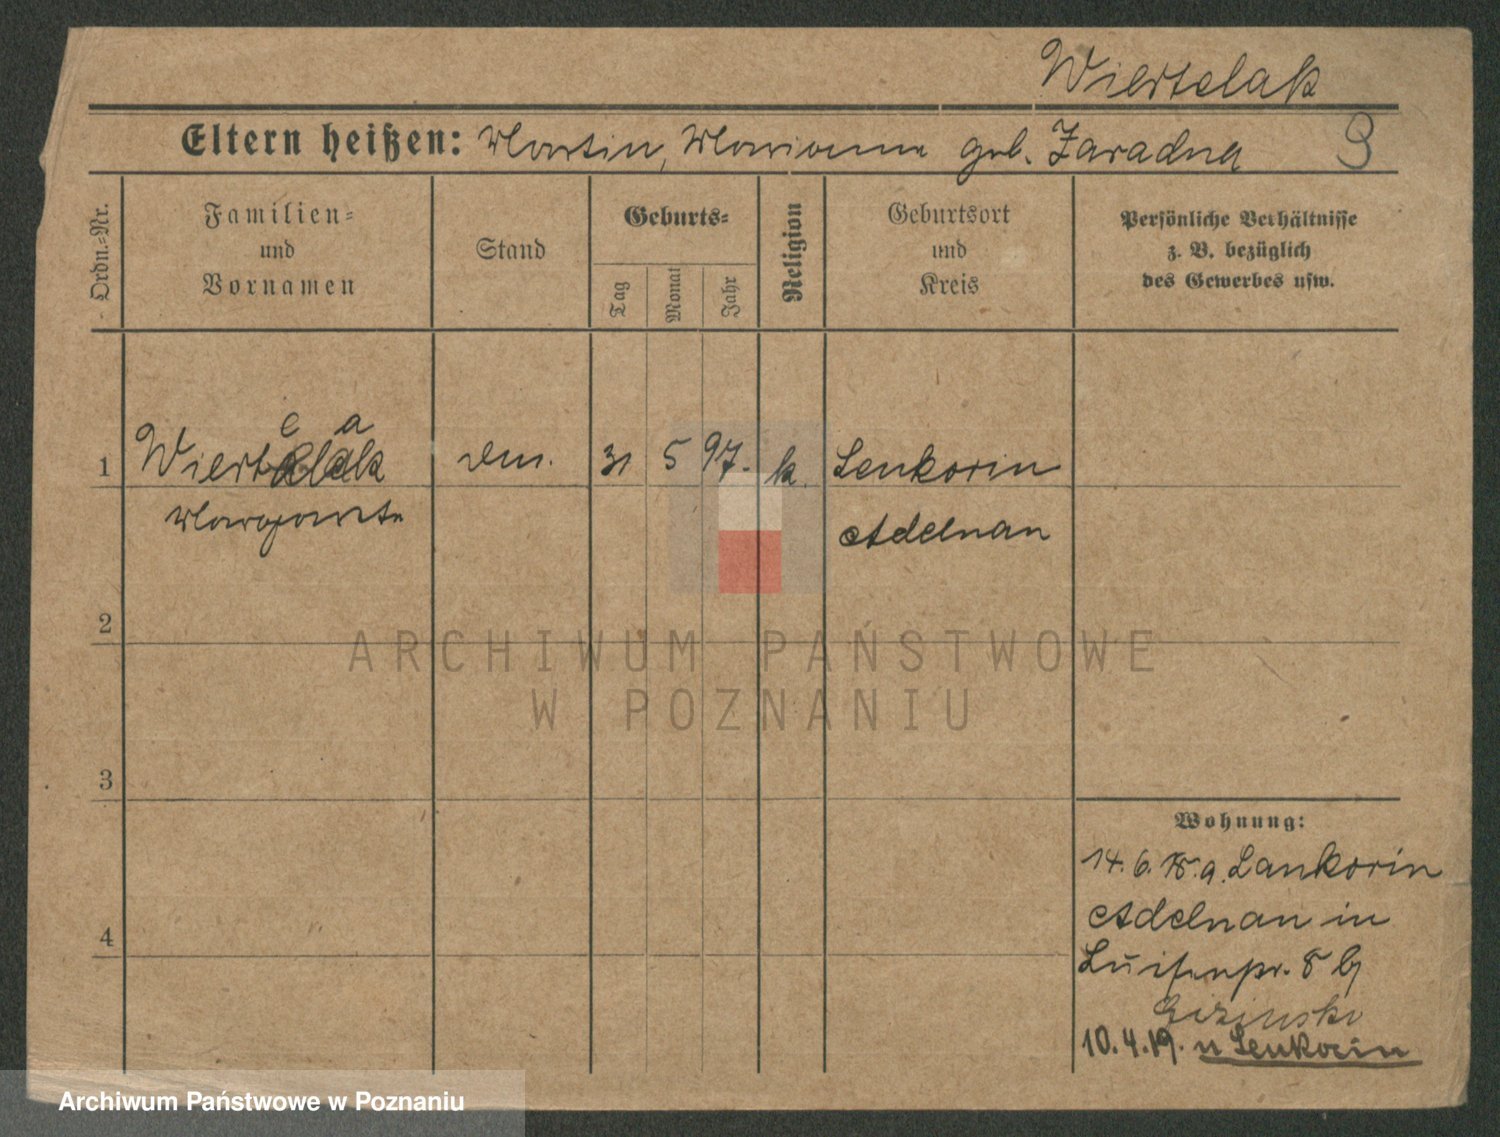 Wiertelak
Eltern heißen: Martin, Marianna geb. Zaradna
Ordn.-Nr.
Familien-
und
Vornamen
Stand
Geburts-
Tag
Monat
Jahr
Religion
Geburtsort
und
Kreis
Persönliche Verhältnisse
z. B. bezüglich
des Gewerbes usw.
e a
1 Wiertelak 31 5 97. k. Lenkorin
Margarete Adelnan
2
ARCHIWUM PAŃSTWOWE
W POZNANIU
3
Wohnung:
14. 6. 18. a. Lankorin
4 Adelnan in
Luisenstr. 8 b/
10. 4. 19. n Lenkorin
Archiwum Państwowe w Poznaniu